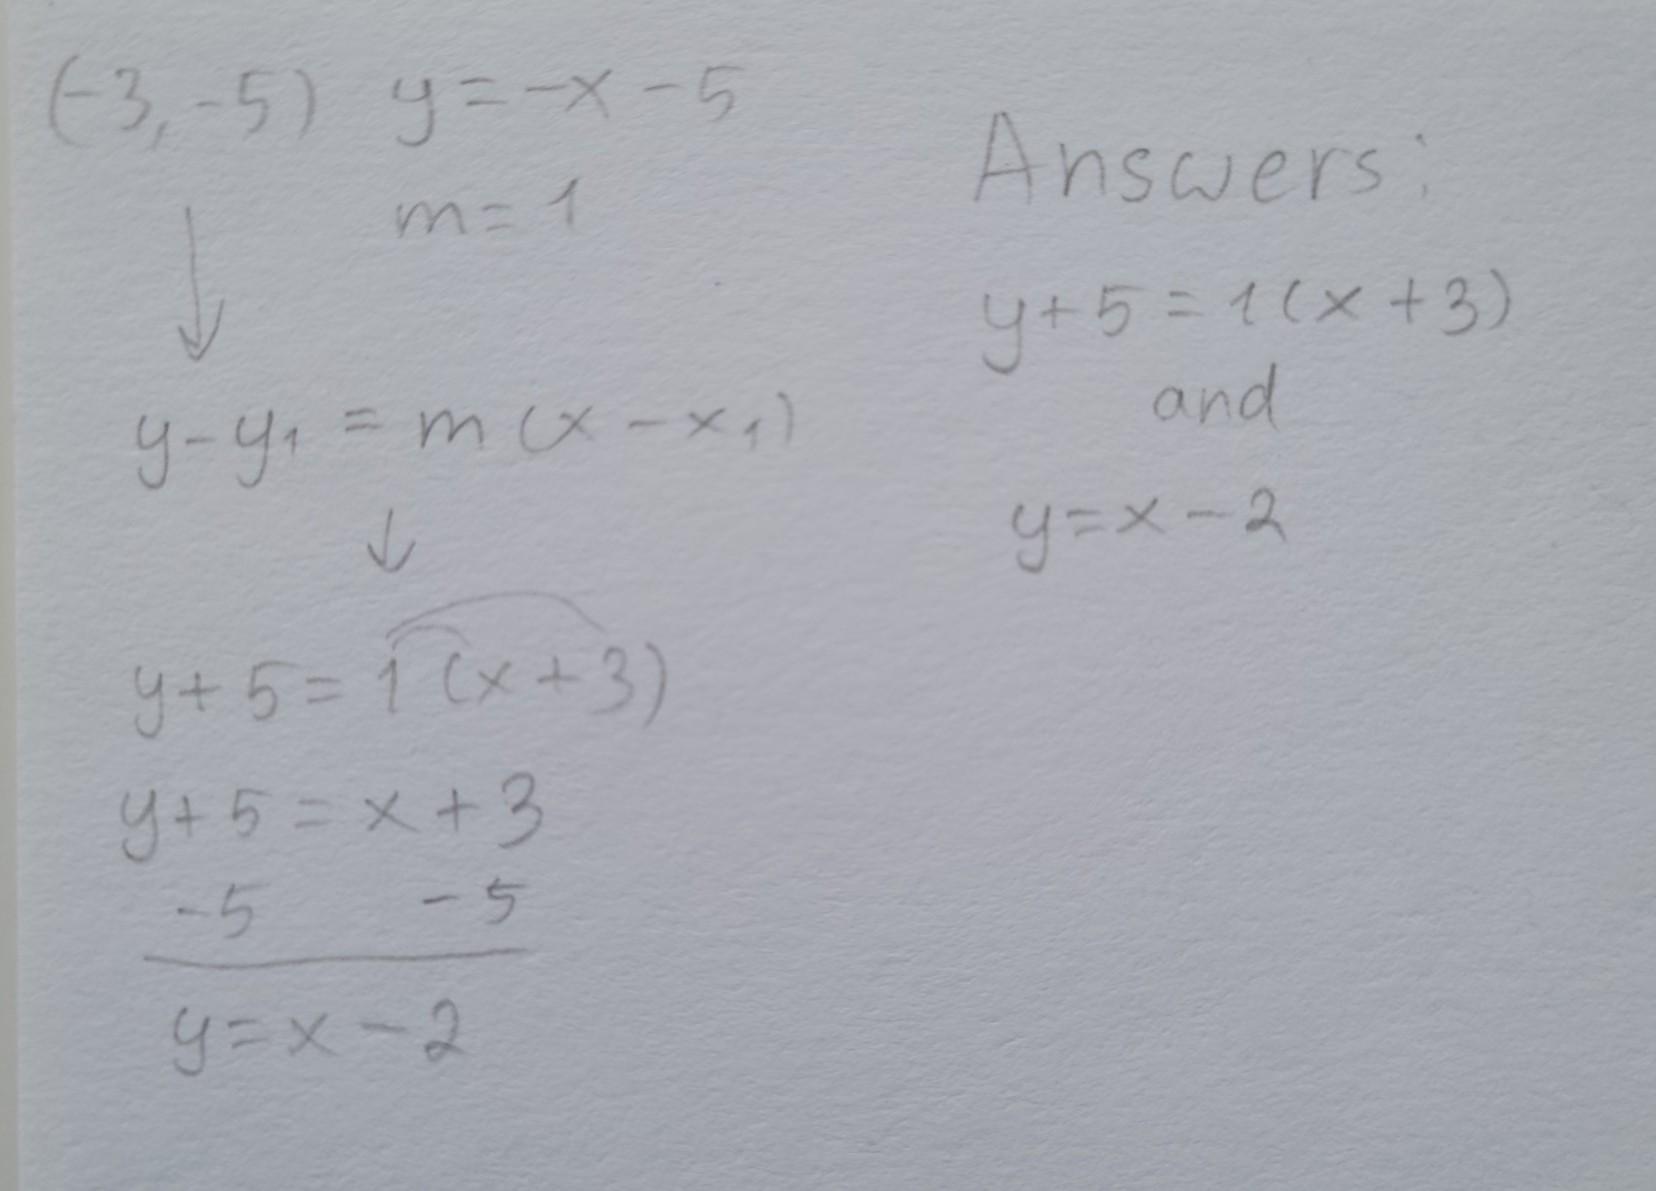 (-3, -5) y = -x - 5
m = 1
y - y₁ = m (x - x₁)
y + 5 = 1 (x + 3)
y + 5 = x + 3
-5 - 5
y = x - 2
Answers:
y + 5 = 1 (x + 3)
and
y = x - 2